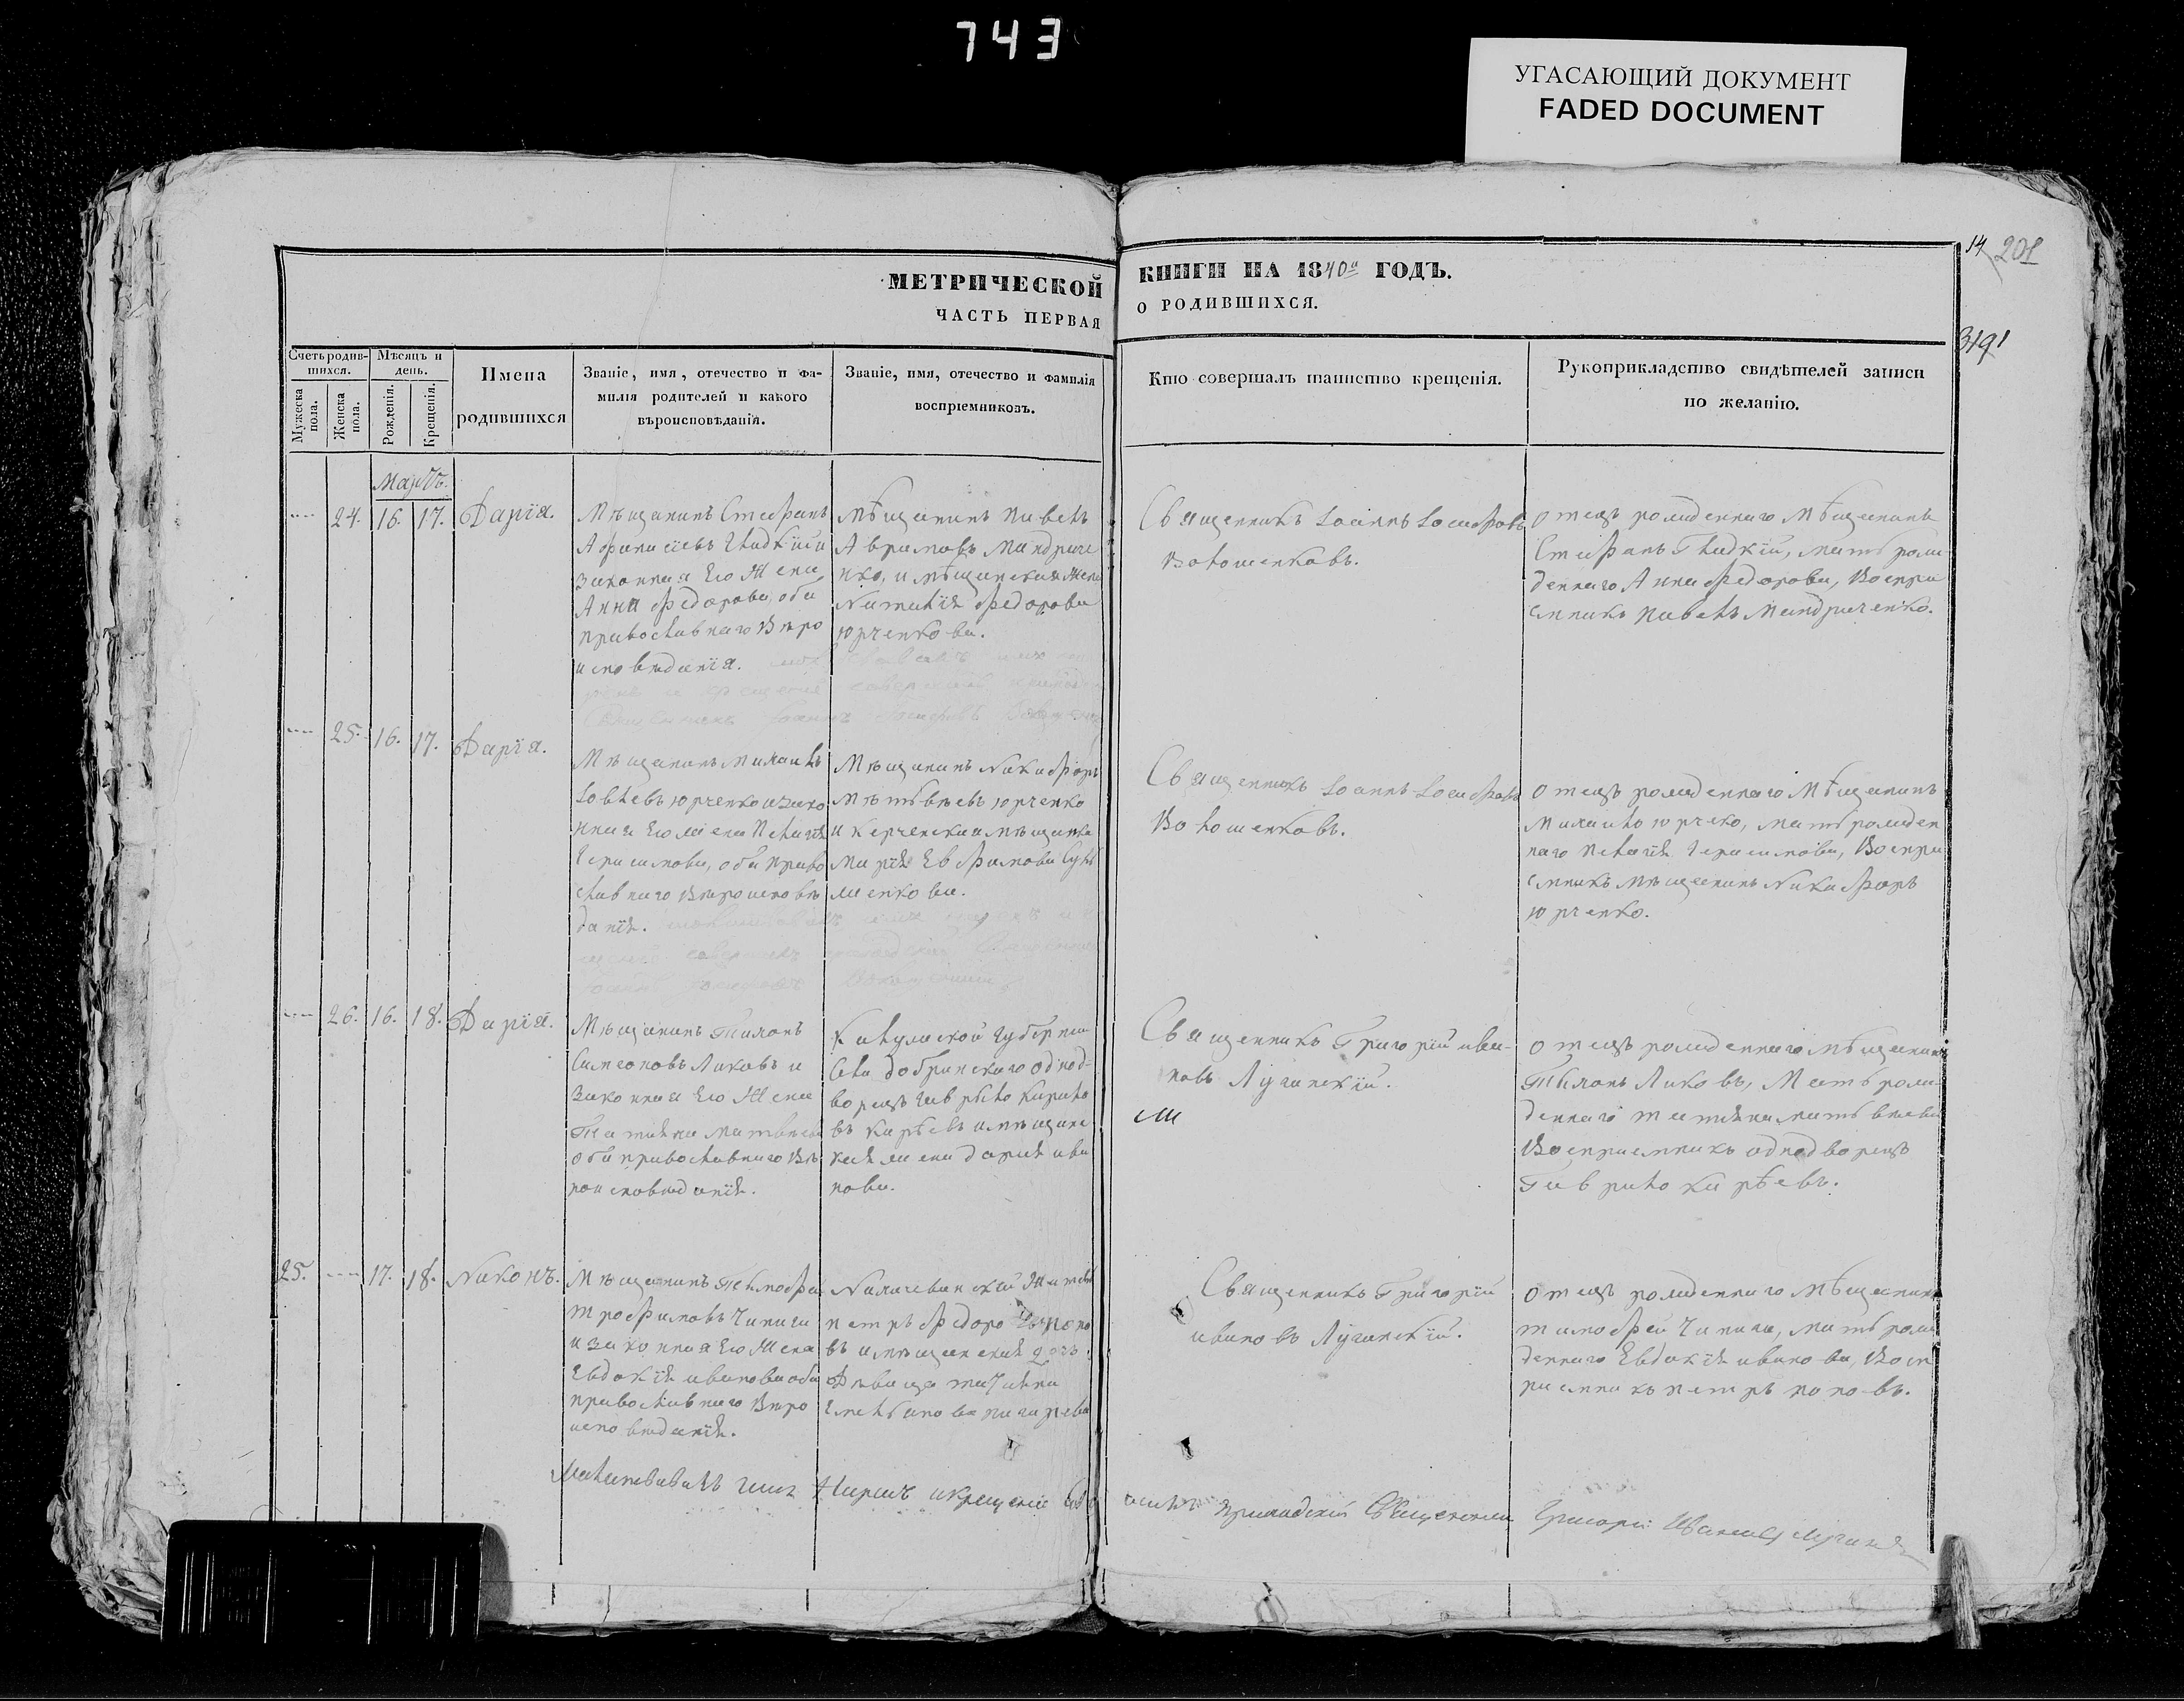 743
УГАСАЮЩИЙ ДОКУМЕНТ
FADED DOCUMENT
МЕТРИЧЕСКОЙ
ЧАСТЬ ПЕРВАЯ
КНИГИ НА 1840й ГОДЪ.
О РОДИВШИХСЯ.
14
201
Счетъ родив-
шихся.
Мужеска пола.
Женска пола.
Мѣсяцъ и
день.
Рожденія.
Крещенія.
Имена
родившихся
Званіе, имя, отечество и фа-
милія родителей и какого
вѣроисповѣданія.
Званіе, имя, отечество и фамилія
воспріемниковъ.
Кто совершалъ таинство крещенія.
Рукоприкладство свидѣтелей записи
по желанію.
Мартъ.
24. 16. 17. Дарія.
Мѣщанинъ Стефанъ
Афанасіевъ Гладкій и
законная Его Жена
Анна Федорова, оба
православнаго Вѣро
исповѣданія.
Мѣщанинъ Павелъ
Аврамовъ Мандриче
нко, и мѣщанская Жена
Наталія Федорова
Юрченкова.
Священникъ Іоаннъ Іосифовъ
Волошенковъ.
Отецъ рожденнаго Мѣщанинъ
Стефанъ Гладкій, мать рож
деннаго Анна Федорова, Воспри
емникъ Павелъ Мандриченко.
25. 16. 17. Дарія.
Мѣщанинъ Михаилъ
Іовлевъ Юрченко и зако
нная Его жена Пелагія
Герасимова, оба право
славнаго Вѣроисповѣ
данія.
Мѣщанинъ Никифоръ
Матвѣевъ Юрченко
и Керченская мѣщанка
Марія Евфимова
Священникъ Іоаннъ Іосифовъ
Волошенковъ.
Отецъ рожденнаго Мѣщанинъ
Михаило Юрчеко, мать рожден
наго Пелагія Герасимова, Воспри
емникъ мѣщанинъ Никифоръ
Юрченко.
26. 16. 18. Дарія.
Мѣщанинъ Тихонъ
Симеоновъ Ликовъ и
законная Его Жена
Татіяна Матвѣева
оба православнаго Вѣ
роисповѣданія.
Калужской Губерніи
Села Добринскаго однод-
ворецъ Гаврило Кирило
въ Кирѣевъ и мѣщанс
кая жена Дарія Ива
нова.
Священникъ Григорій Ива-
новъ Лучинскій.
Отецъ рожденнаго мѣщанинъ
Тихонъ Ликовъ, Мать рож
деннаго Татіяна Матвѣева
Восприемникъ однодворецъ
Гаврило Кирѣевъ.
25. 17. 18. Никонъ.
Мѣщанинъ Тимофей
Трофимовъ Чипига
и законная Его Жена
Евдокія Иванова оба
православнаго Вѣро
исповѣданія.
Нахичеванскій Житель
Петръ Федоро Попо
въ и мѣщанская дочь
Дѣвица Татіяна
Священникъ Григорій
Ивановъ Лучинскій.
Отецъ рожденнаго Мѣщанинъ
Тимофей Чипига, мать рож
деннаго Евдокія Иванова, Восп
риемникъ Петръ Поповъ.
Молитвовалъ имя нарекъ и крещеніе
приходскій Священникъ Григорій Ивановъ